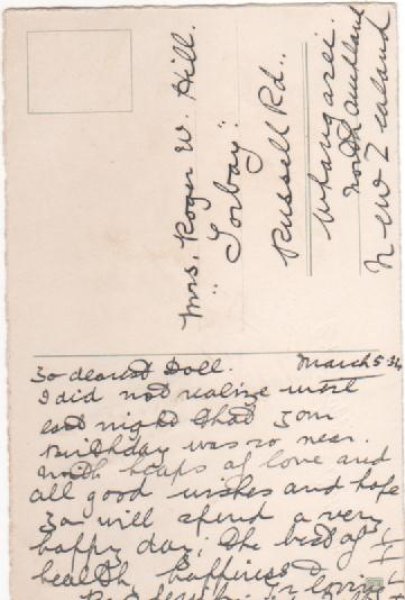 Mrs. Roger W. Hill.
"Torbay".
Russell Rd..
Whangarei.
North Auckland
New Zealand
March 5 34
To dearest Doll.
I did not realize until
last night that your
Birthday was so near.
With heaps of love and
all good wishes and hope
you will spend a very
happy day; the best of
health, happiness &
loving